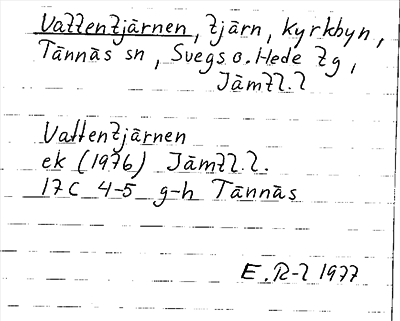 Vattentjärnen, tjärn, Kyrkbyn,
Tännäs sn, Svegs o. Hede tg,
Jämtl. l
Vattentjärnen
ek (1976) Jämtl. l.
17C 4-5 g-h Tännäs
E. R-l 1977